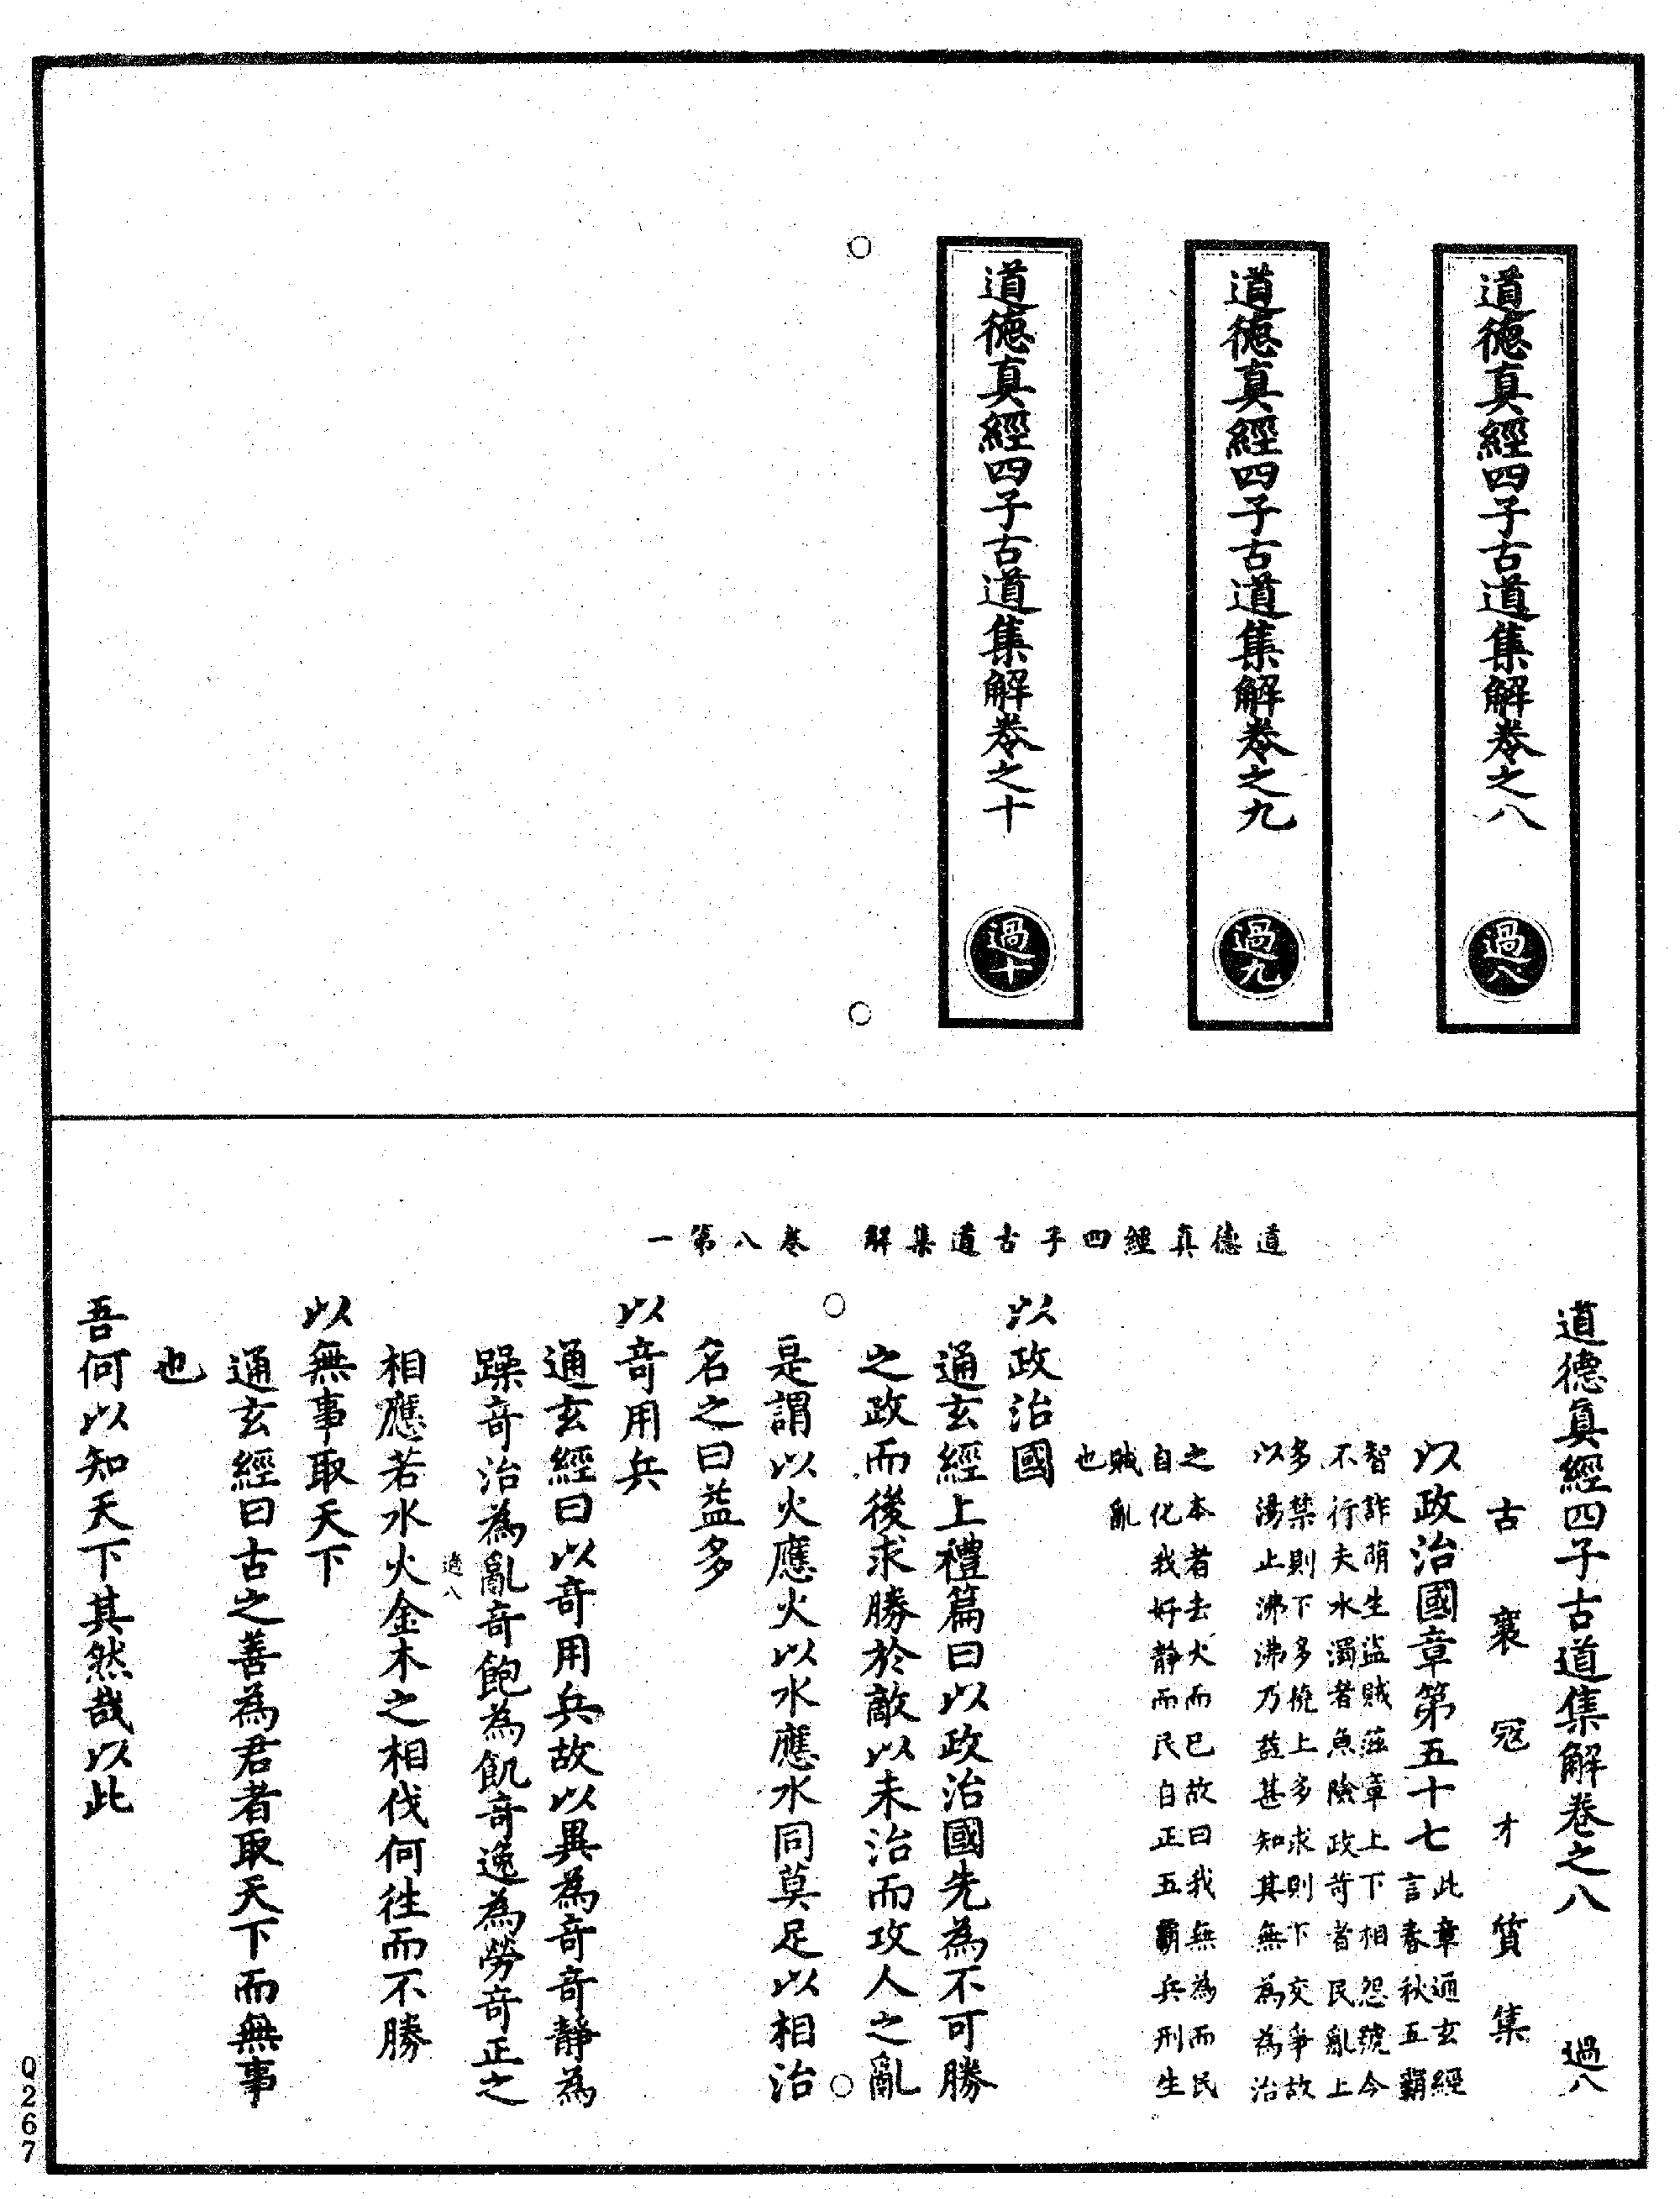 道德真經四子古道集解卷之八
過八
道德真經四子古道集解卷之九
過九
道德真經四子古道集解卷之十
過十
道德真經四子古道集解 卷八第一
道德真經四子古道集解卷之八 過八
古襄寇才質集
以政治國章第五十七
此章通玄經
言春秋五霸
智詐萌生盜賊茲章上下相怨號令
不行夫水濁者魚險政苛者民亂上
多禁則下多撓上多求則下交爭故
以湯止沸沸乃益甚知其無為為治
之本者去火而已故曰我無為而民
自化我好靜而民自正五霸兵刑生
賊亂
也
以政治國
通玄經上禮篇曰以政治國先為不可勝
之政而後求勝於敵以未治而攻人之亂
是謂以火應火以水應水同莫足以相治
名之曰益多
以奇用兵
通玄經曰以奇用兵故以異為奇奇靜為
躁奇治為亂奇飽為飢奇逸為勞奇正之
相應若水火金木之相伐何往而不勝
過八
以無事取天下
通玄經曰古之善為君者取天下而無事
也
吾何以知天下其然哉以此
Q267